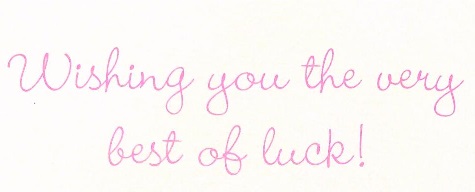 Wishing you the very
best of luck!